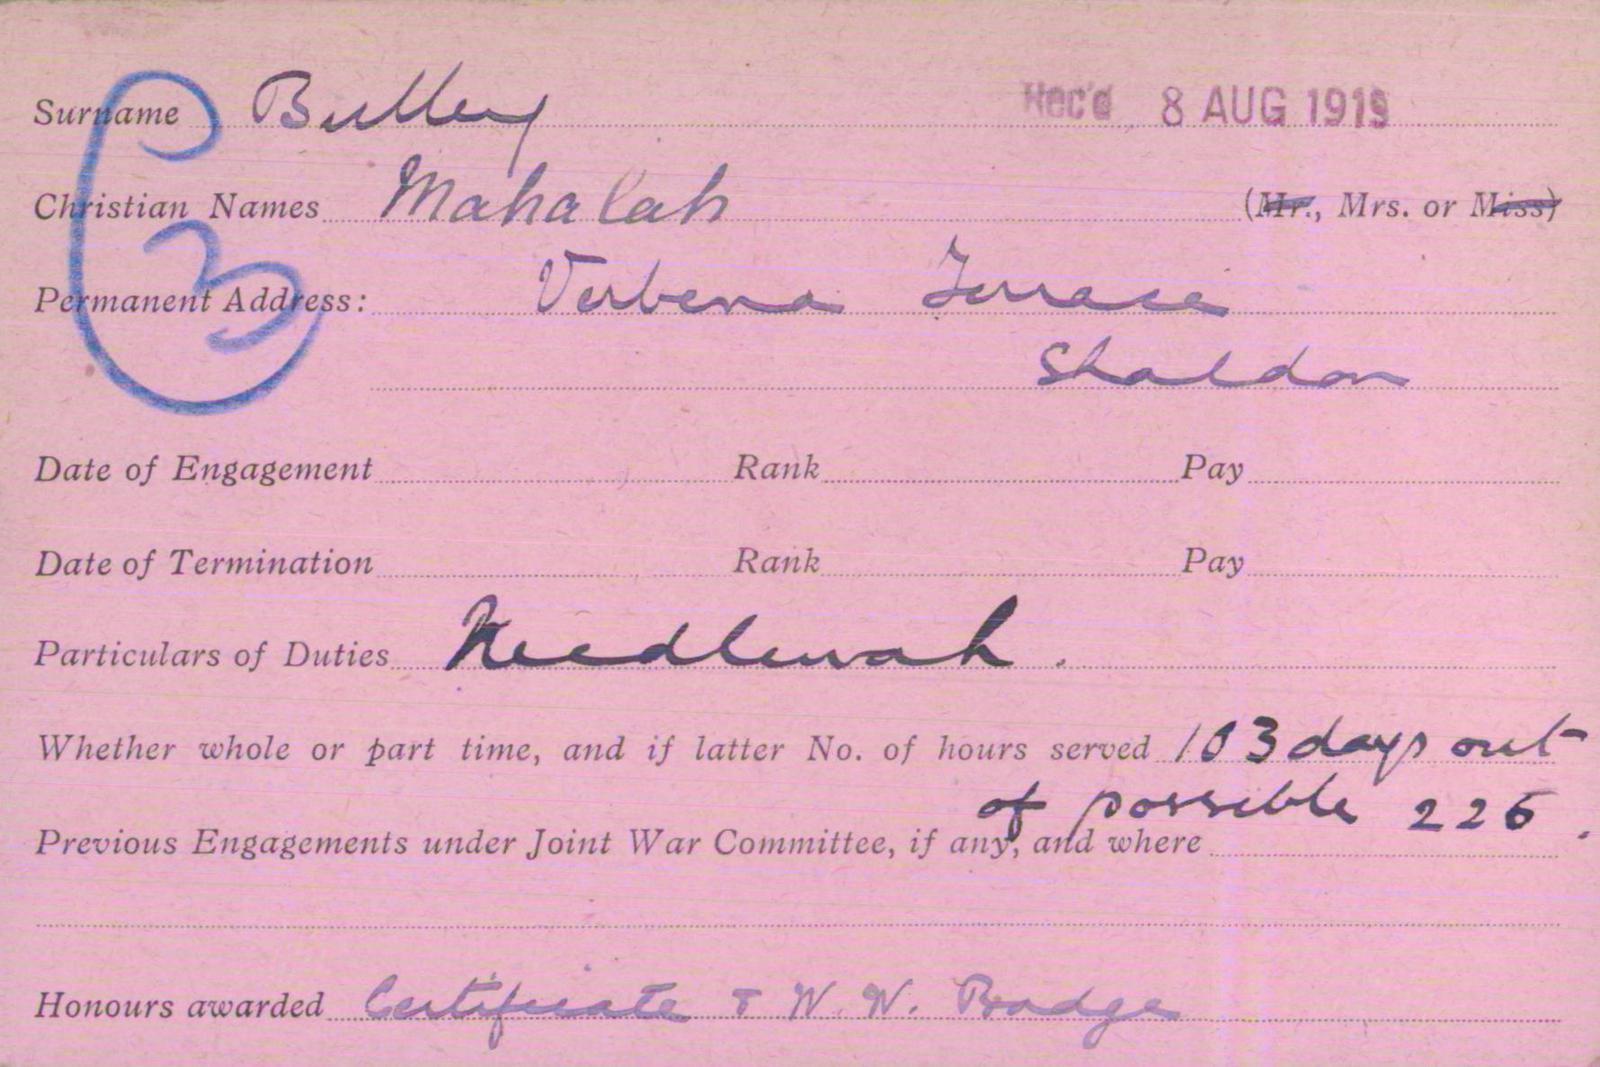 Surname Bulley Rec'd 8 AUG 1919
Christian Names Mahalah (Mr., Mrs. or Miss)
Permanent Address: Verbena Terrace
Shaldon
Date of Engagement Rank Pay
Date of Termination Rank Pay
Particulars of Duties Needlework.
Whether whole or part time, and if latter No. of hours served 103 days out
of possible 226.
Previous Engagements under Joint War Committee, if any, and where
Honours awarded Certificate & W. W. Badge